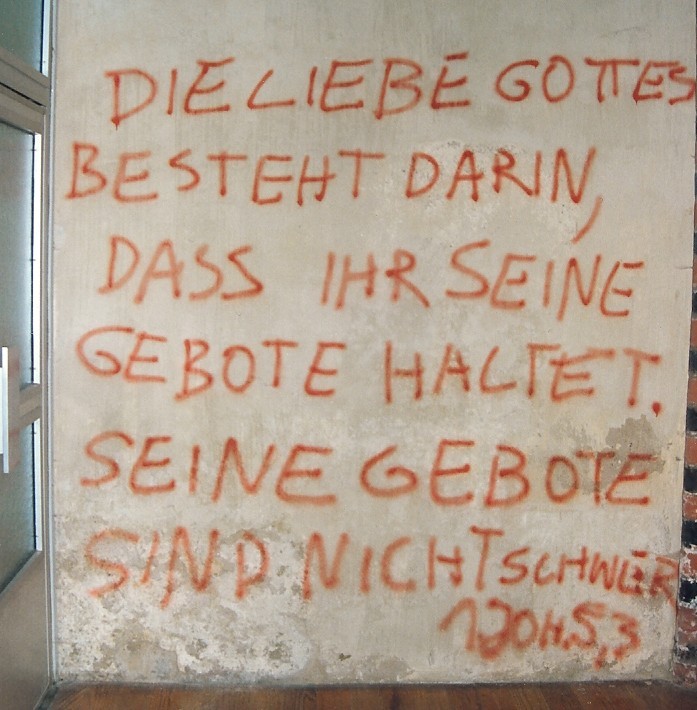 DIE LIEBE GOTTES
BESTEHT DARIN,
DASS IHR SEINE
GEBOTE HALTET.
SEINE GEBOTE
SIND NICHT SCHWER
1JOH.5,3